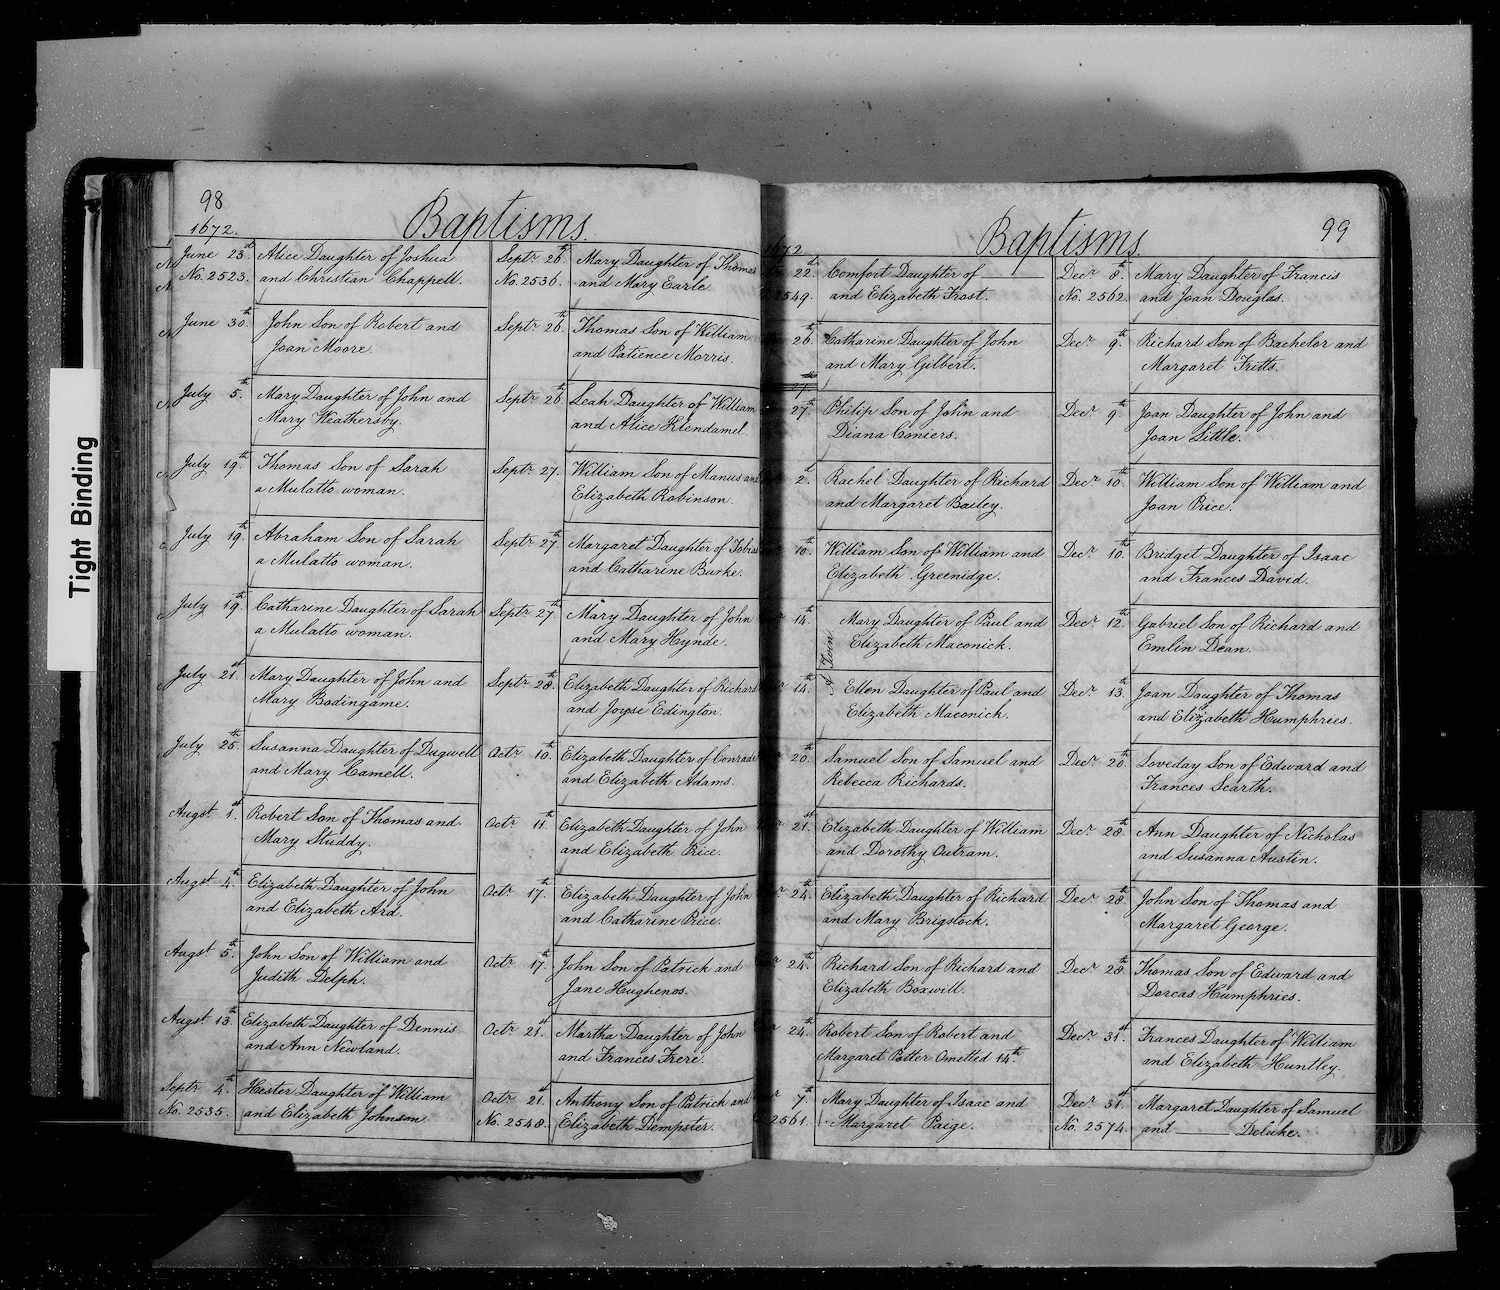 Tight Binding
98
Baptisms.
1672.
June 23d. Alice Daughter of Joshua
No. 2523. and Christian Chappell.
June 30th. John Son of Robert and
Joan Moore.
July 5th. Mary Daughter of John and
Mary Weathersby.
July 19th. Thomas Son of Sarah
a Mulatto woman.
July 19th. Abraham Son of Sarah
a Mulatto woman.
July 19th. Catharine Daughter of Sarah
a Mulatto woman.
July 21st. Mary Daughter of John and
Mary Bodingame.
July 25th. Susanna Daughter of Dugwell
and Mary Camell.
Augst 1st. Robert Son of Thomas and
Mary Studdy.
Augst 4th. Elizabeth Daughter of John
and Elizabeth Ard.
Augst 5th. John Son of William and
Judith Delph.
Augst 13th. Elizabeth Daughter of Dennis
and Ann Newland.
Septr 4th. Hester Daughter of William
No. 2535. and Elizabeth Johnson.
Septr 26th. Mary Daughter of Thomas
No. 2536. and Mary Earle
Septr 26th. Thomas Son of William
and Patience Morris.
Septr 26th. Leah Daughter of William
and Alice Klendamel.
Septr 27. William Son of Manus and
Elizabeth Robinson.
Septr 27th. Margaret Daughter of Tobias
and Catharine Burke.
Septr 27th. Mary Daughter of John
and Mary Hynde.
Septr 28th. Elizabeth Daughter of Richard
and Joyse Edington.
Octr 10th. Elizabeth Daughter of Conrade
and Elizabeth Adams.
Octr 11th. Elizabeth Daughter of John
and Elizabeth Price.
Octr 17th. Elizabeth Daughter of John
and Catharine Rice.
Octr 17th. John Son of Patrick and
Jane Hughenos.
Octr 21st. Martha Daughter of John
and Frances Frere.
Octr 21st. Anthony Son of Patrick and
No. 2548. Elizabeth Dempster.
99
Baptisms.
1672
22d. Comfort Daughter of
2549. and Elizabeth Frost.
26th. Catharine Daughter of John
and Mary Gilbert.
27th. Philip Son of John and
Diana Coniers.
2d. Rachel Daughter of Richard
and Margaret Bailey.
10th. William Son of William and
Elizabeth Greenidge.
14th. Mary Daughter of Paul and
Elizabeth Maconick.
A Twin
14th. Ellen Daughter of Paul and
Elizabeth Maconick.
20th. Samuel Son of Samuel and
Rebecca Richards.
21st. Elizabeth Daughter of William
and Dorothy Outram.
24th. Elizabeth Daughter of Richard
and Mary Brigstock.
24th. Richard Son of Richard and
Elizabeth Boxwill.
24th. Robert Son of Robert and
Margaret Potter Omitted 14th.
7th. Mary Daughter of Isaac and
2561. Margaret Paige.
Decr 8. Mary Daughter of Francis
No. 2562 and Joan Douglas.
Decr 9th. Richard Son of Bachelor and
Margaret Fritts.
Decr 9th. Joan Daughter of John and
Joan Little.
Decr 10th. William Son of William and
Joan Price.
Decr 10th. Bridget Daughter of Isaac
and Frances David.
Decr 12th. Gabriel Son of Richard and
Emlin Dean.
Decr 13th. Joan Daughter of Thomas
and Elizabeth Humphries.
Decr 20th. Loveday Son of Edward and
Frances Scarth.
Decr 28th. Ann Daughter of Nicholas
and Susanna Austin.
Decr 28th. John Son of Thomas and
Margaret George.
Decr 28th. Thomas Son of Edward and
Dorcas Humphries.
Decr 31st. Frances Daughter of William
and Elizabeth Huntley.
Decr 31st. Margaret Daughter of Samuel
No. 2574. and Deluke.